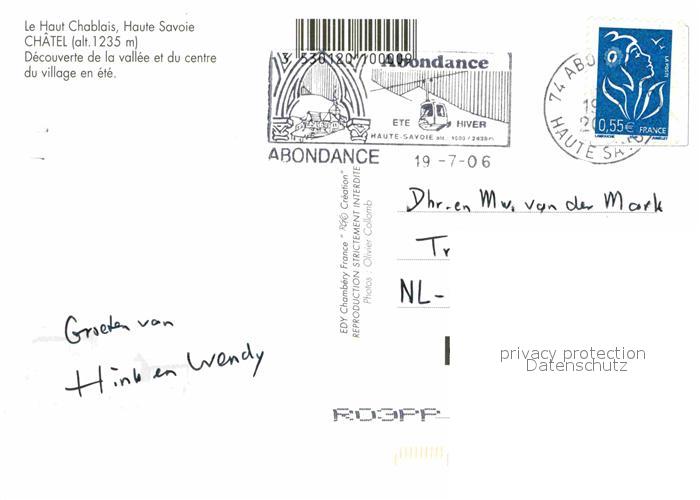 Le Haut Chablais, Haute Savoie
CHÂTEL (alt.1235 m)
Découverte de la vallée et du centre
du village en été.
3 530120 100000
Abondance
ETE HIVER
HAUTE-SAVOIE alt. 1000/2438m
ABONDANCE 19-7-06
74 ABO
19
20
HAUTE SA
LA POSTE
0,55€ FRANCE
EDY Chambéry France " R&© Création"
REPRODUCTION STRICTEMENT INTERDITE
Photos : Olivier Collomb
Dhr. en Mw. van der Mark
Tr
NL-
Groeten van
Hink en Wendy
privacy protection
Datenschutz
RO3PP